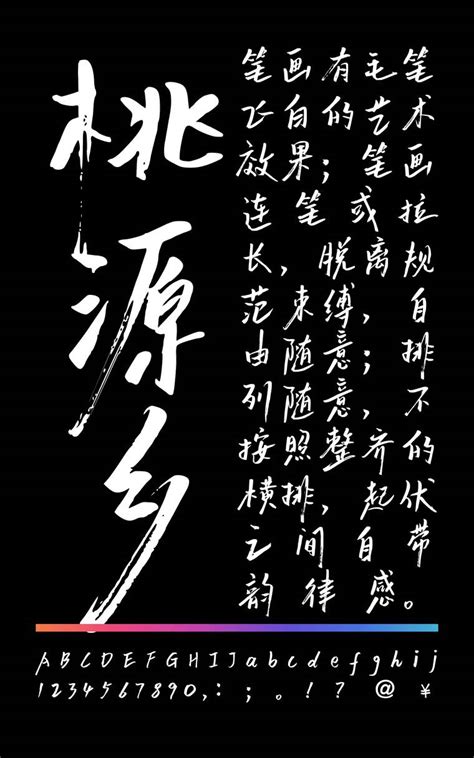 桃源乡
笔画有毛笔
飞白的艺术
效果；笔画
连笔或拉
长，脱离规
范束缚，自
由随意；排
列随意，不
按照整齐的
横排，起伏
之间自带
韵律感。
ABCDEFGHIJabcdefghij
1234567890,:;。!?@¥